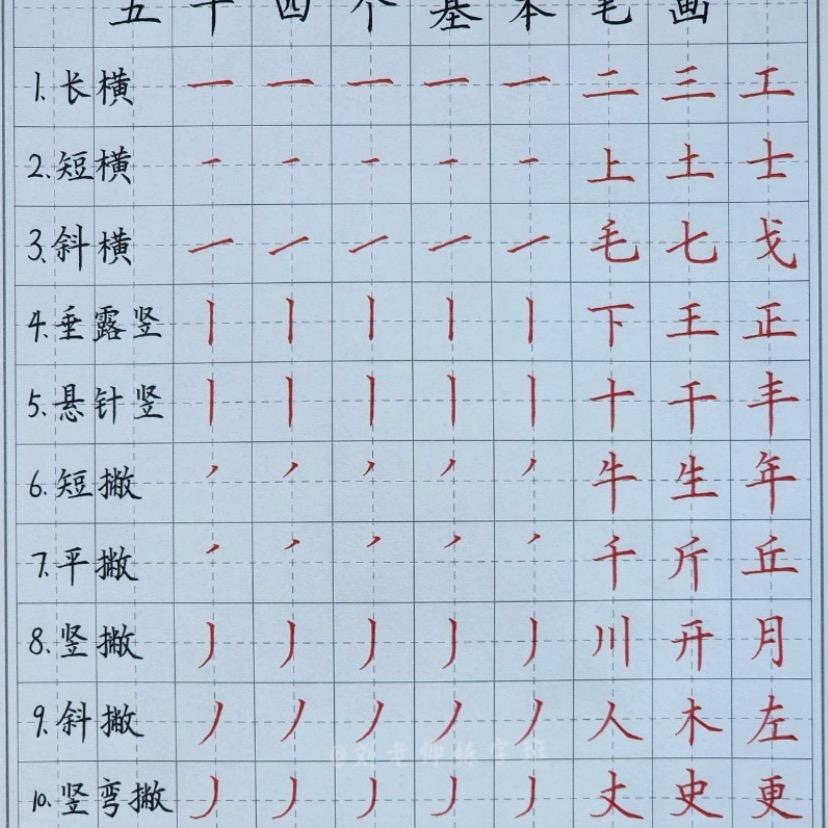 五十四个基本笔画
1.长横 一 一 一 一 一 二 三 工
2.短横 一 一 一 一 一 上 土 士
3.斜横 一 一 一 一 一 毛 七 戈
4.垂露竖 丨 丨 丨 丨 丨 下 王 正
5.悬针竖 丨 丨 丨 丨 丨 十 干 丰
6.短撇 丿 丿 丿 丿 丿 牛 生 年
7.平撇 丿 丿 丿 丿 丿 千 斤 丘
8.竖撇 丿 丿 丿 丿 丿 川 开 月
9.斜撇 丿 丿 丿 丿 丿 人 木 左
@刘老师练字班
10.竖弯撇 丿 丿 丿 丿 丿 丈 史 更